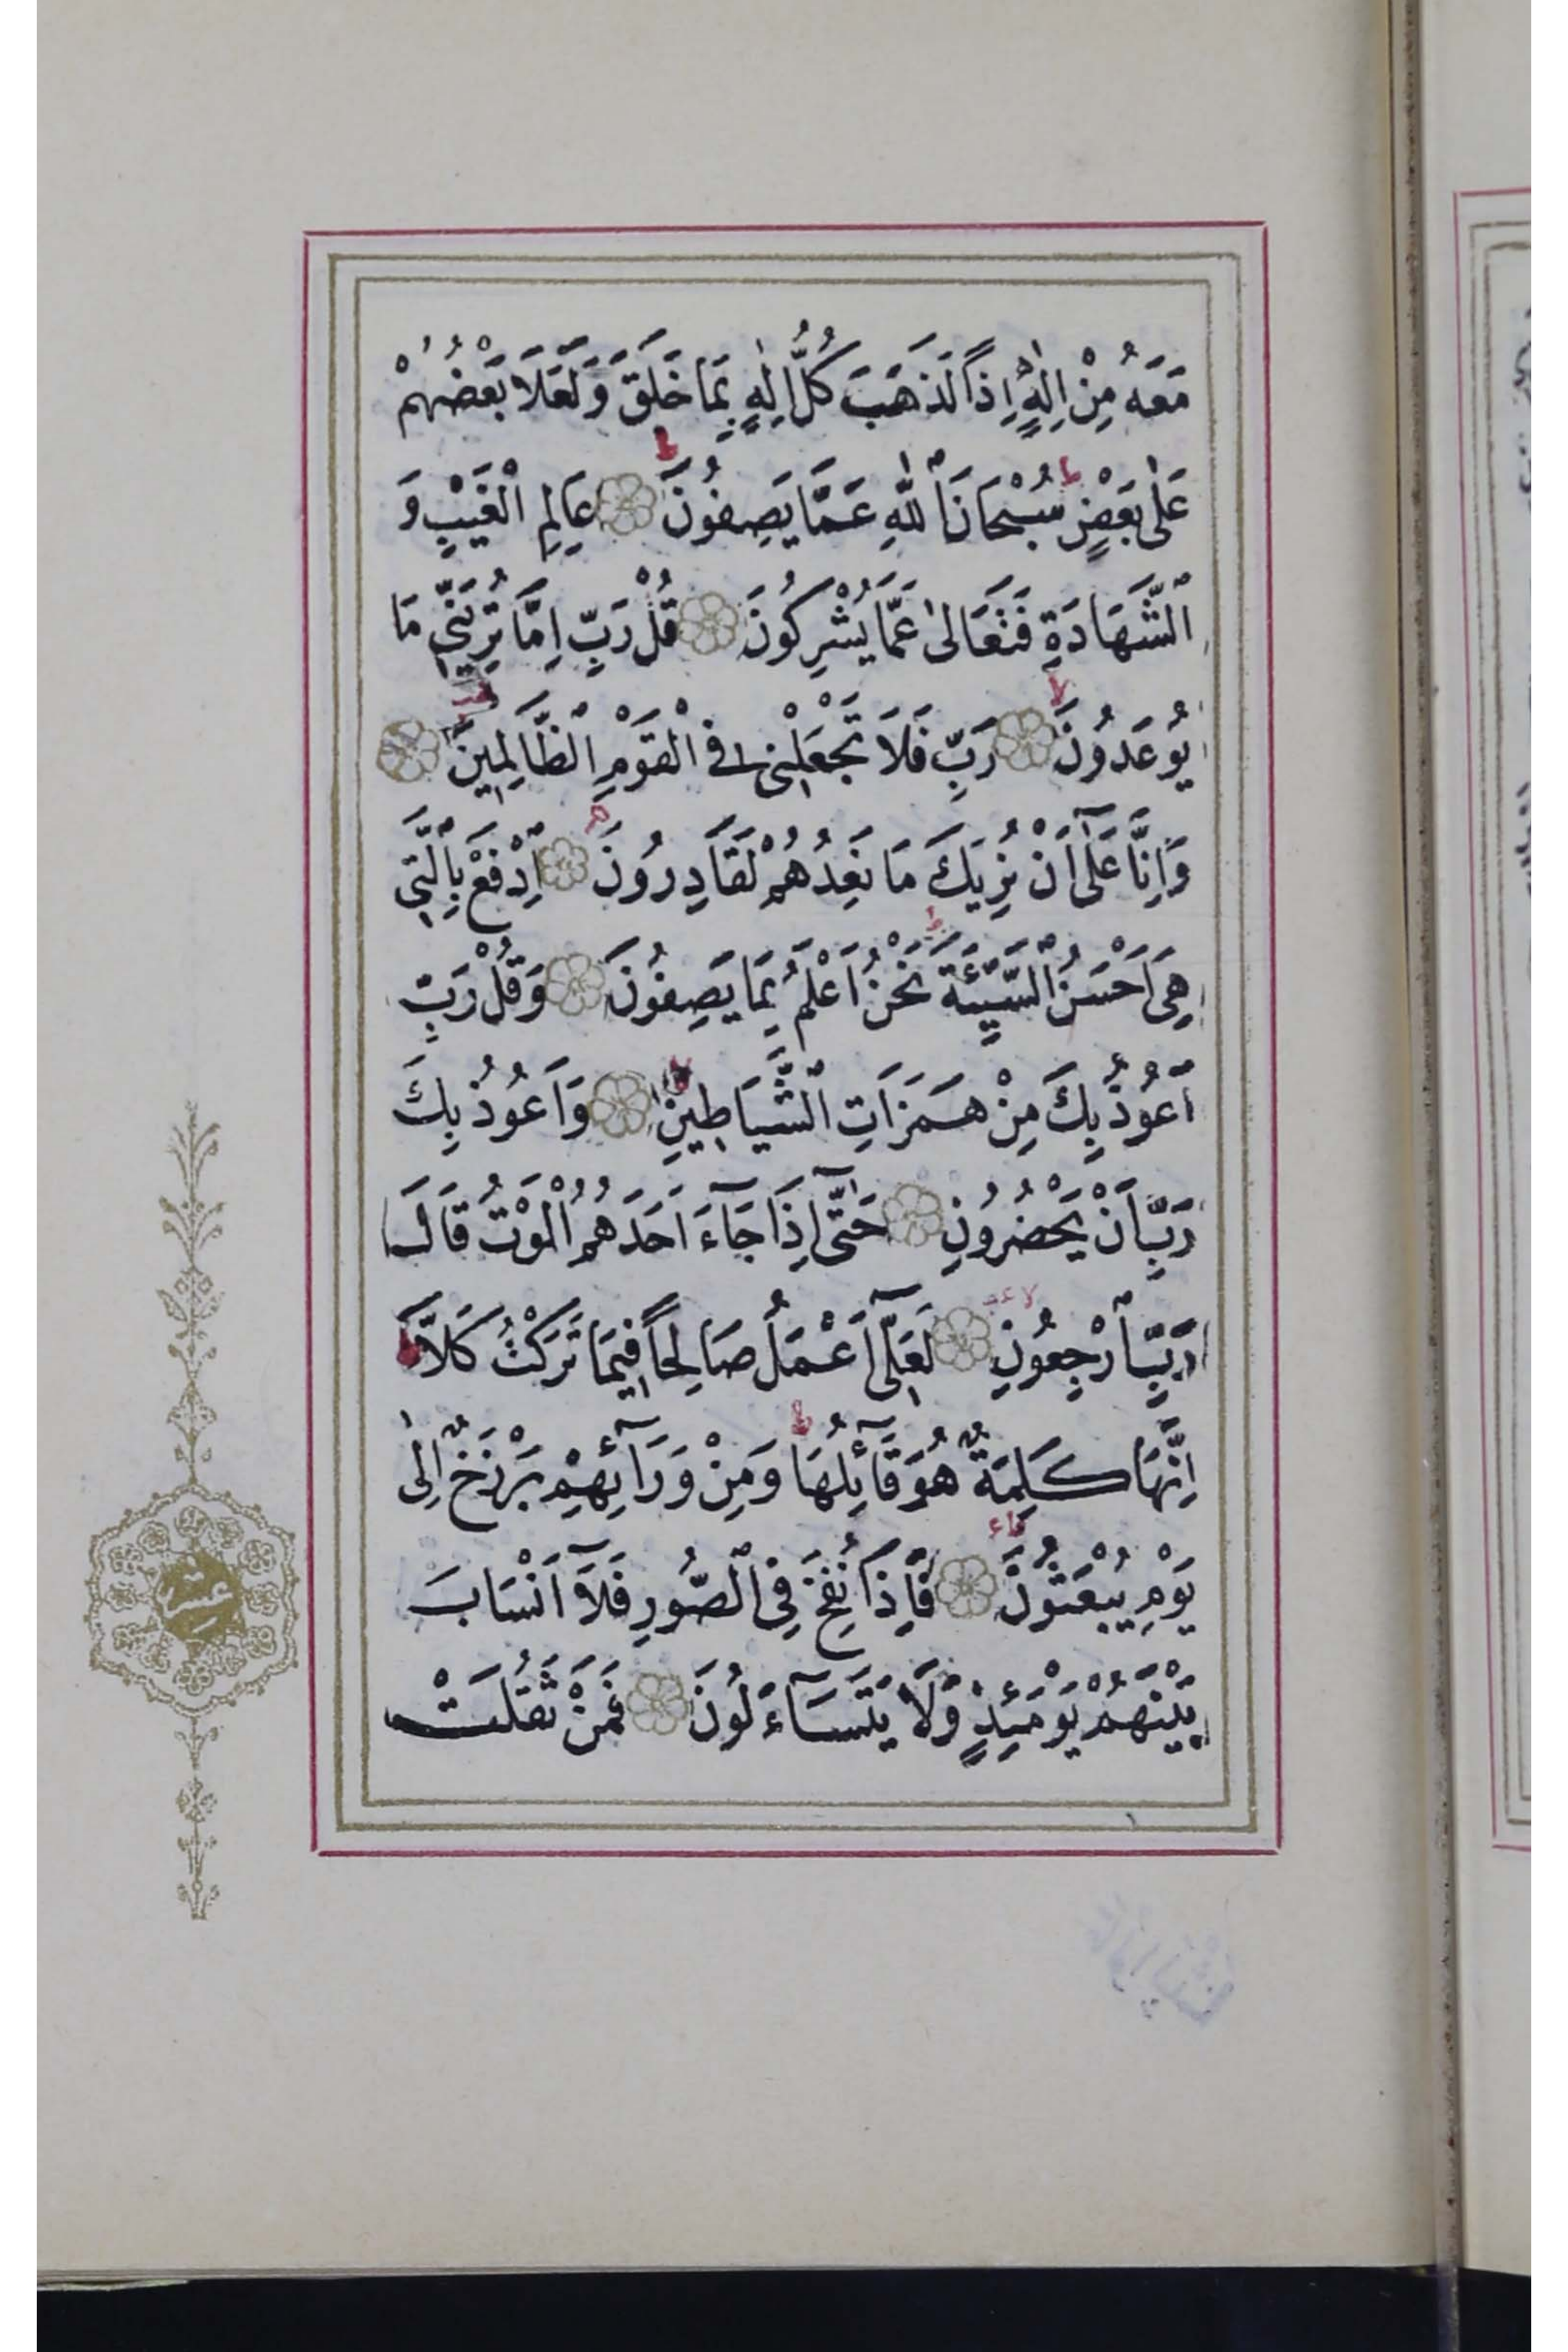 مَعَهُ مِنْ اِلٰهٍ اِذاً لَذَهَبَ كُلُّ اِلٰهٍ بِمَا خَلَقَ وَلَعَلَا بَعْضُهُمْ
عَلٰى بَعْضٍ ط سُبْحَانَ اللّٰهِ عَمَّا يَصِفُونَ ط عَالِمِ الْغَيْبِ وَ
الشَّهَادَةِ فَتَعَالٰى عَمَّا يُشْرِكُونَ قُلْ رَبِّ اِمَّا تُرِيَنّٖى مَا
يُوعَدُونَ لا رَبِّ فَلَا تَجْعَلْنٖى فِى الْقَوْمِ الظَّالِمٖينَ
وَاِنَّا عَلٰٓى اَنْ نُرِيَكَ مَا نَعِدُهُمْ لَقَادِرُونَ اِدْفَعْ بِالَّتٖى
هِىَ اَحْسَنُ السَّيِّئَةَ ط نَحْنُ اَعْلَمُ بِمَا يَصِفُونَ وَقُلْ رَبِّ
اَعُوذُ بِكَ مِنْ هَمَزَاتِ الشَّيَاطٖينِ لا وَاَعُوذُ بِكَ
رَبِّ اَنْ يَحْضُرُونِ حَتّٰٓى اِذَا جَٓاءَ اَحَدَهُمُ الْمَوْتُ قَالَ
رَبِّ ارْجِعُونِ لا لَعَلّٖٓى اَعْمَلُ صَالِحاً فٖيمَا تَرَكْتُ كَلَّا ط
اِنَّهَا كَلِمَةٌ هُوَ قَٓائِلُهَا ط وَمِنْ وَرَٓائِهِمْ بَرْزَخٌ اِلٰى
يَوْمِ يُبْعَثُونَ فَاِذَا نُفِخَ فِى الصُّورِ فَلَٓا اَنْسَابَ
بَيْنَهُمْ يَوْمَئِذٍ وَلَا يَتَسَٓاءَلُونَ فَمَنْ ثَقُلَتْ